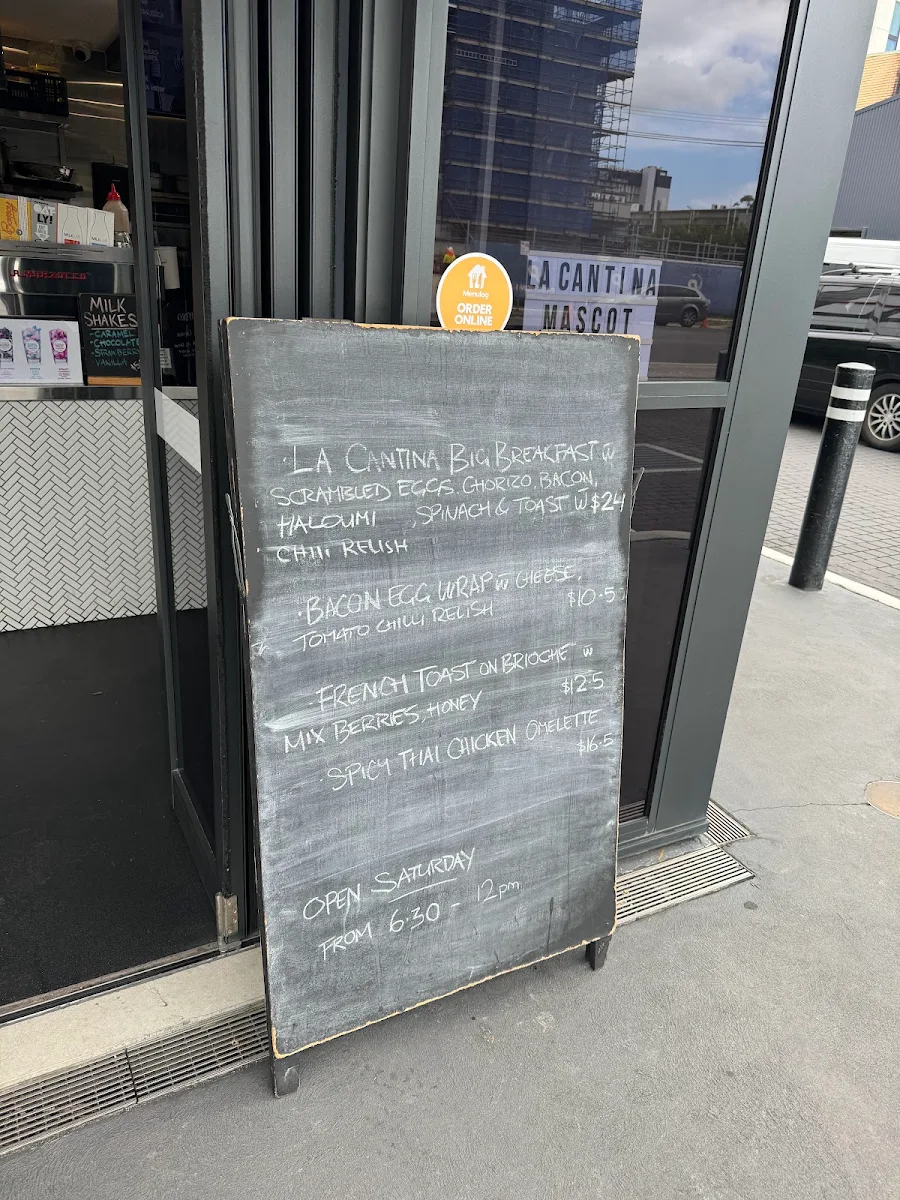 MILK
SHAKES
-CARAMEL
-CHOCOLATE
-STRAWBERRY
VANILLA
OATLY!
Menulog
ORDER
ONLINE
LA CANTINA
MASCOT
· LA CANTINA BIG BREAKFAST W̄
SCRAMBLED EGGS. CHORIZO, BACON,
HALOUMI , SPINACH & TOAST W̄ $24
· CHILLI RELISH
· BACON EGG WRAP W̄ CHEESE,
TOMATO CHILLI RELISH $10.5
· FRENCH TOAST ON BRIOCHE W̄
MIX BERRIES, HONEY $12.5
· SPICY THAI CHICKEN OMELETTE
$16.5
OPEN SATURDAY
FROM 6.30 - 12pm